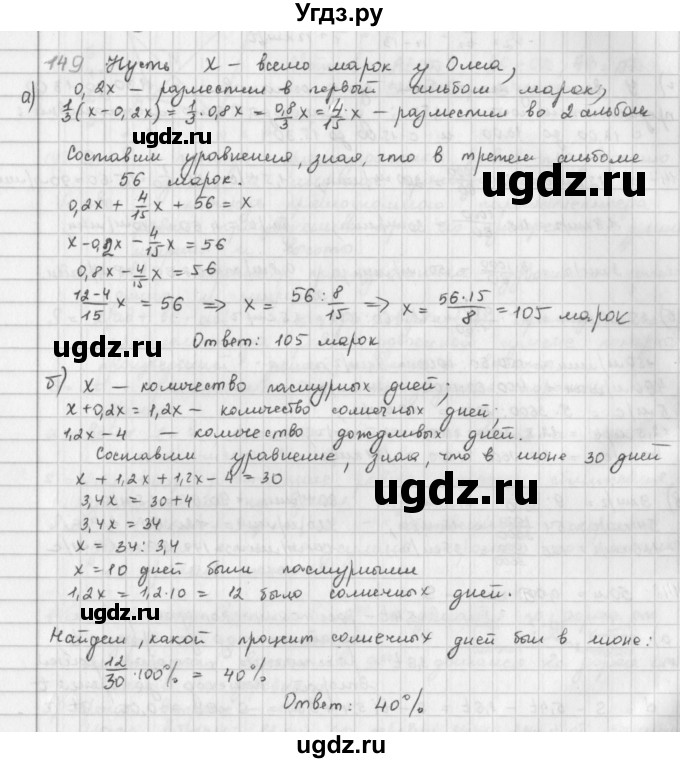 Угдз.ру
149 Пусть x – всего марок у Олега,
а) 0,2x – разместил в первый альбом марок,
1/3(x-0,2x) = 1/3·0,8x = 0,8/3 x = 4/15·x – разместил во 2 альбом
ugdz.ru
Составим уравнения, зная, что в третем альбоме
56 марок.
ugdz.ru
0,2x + 4/15x + 56 = x
x-0,2x - 4/15x = 56
0,8x - 4/15x = 56
12-4/15 x = 56 => x = 56:8/15 => x = 56·15/8 = 105 марок
Ответ: 105 марок
ugdz.ru
б) x – количество пасмурных дней;
x+0,2x=1,2x – количество солнечных дней;
1,2x-4 – количество дождливых дней.
Составим уравнение, зная, что в июне 30 дней
x + 1,2x + 1,2x - 4 = 30
ugdz.ru
3,4x = 30+4
3,4x = 34
x = 34:3,4
x = 10 дней были пасмурными
1,2x = 1,2·10 = 12 было солнечных дней.
ugdz.ru
Найдем, какой процент солнечных дней был в июне:
12/30·100% = 40%
Ответ: 40%
ugdz.ru